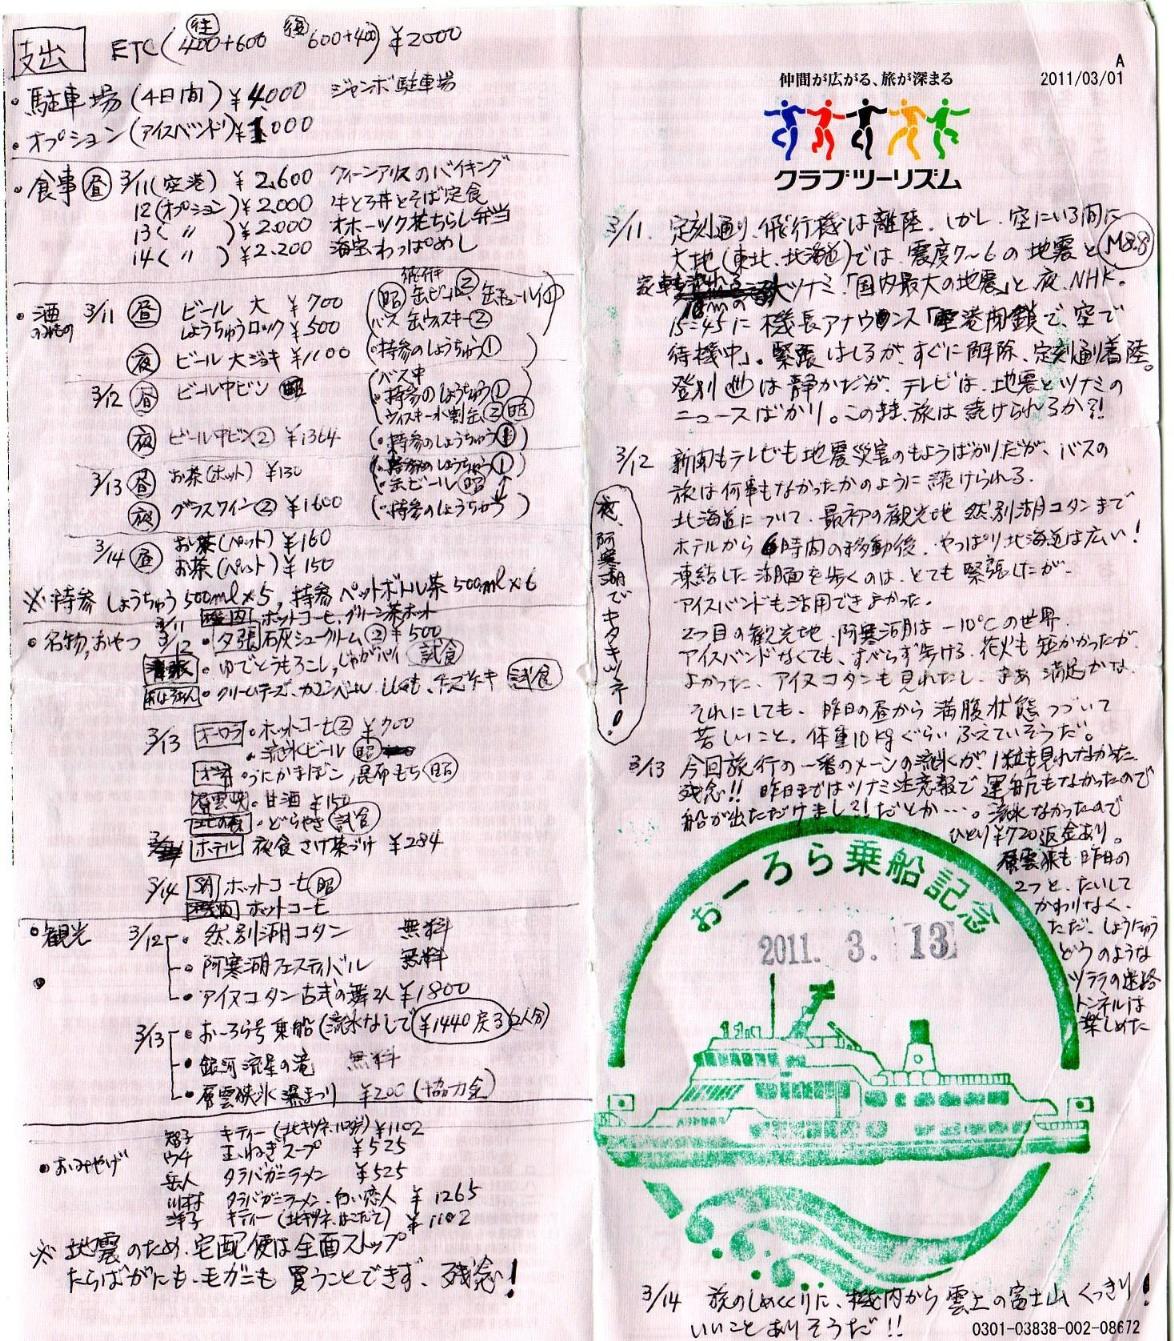 支出 ETC(往400+600 復600+400) ¥2000
・駐車場(4日間)¥4000 ジャンボ駐車場
・オプション(アイスバンド)¥1000
・食事 昼 3/11(空港) ¥2,600 クィーンアリスのバイキング
12(オプション)¥2,000 牛とろ丼とそば定食
13( 〃 )¥2,000 オホーツク花ちらし弁当
14( 〃 )¥2,200 海宝わっぱめし
・酒 のみもの 3/11 昼 ビール 大 ¥700
しょうちゅうロック ¥500
夜 ビール 大ジョキ ¥1100
缶ビール②
バス 缶ウィスキー②
・持参のしょうちゅう①
3/12 昼 ビール中ビン
バス中
・持参のしょうちゅう①
ウィスキー水割缶②
夜 ビール中ビン② ¥1364
(・持参のしょうちゅう①
3/13 昼 お茶(ホット) ¥130
・持参のしょうちゅう①
・缶ビール
夜 グラスワイン② ¥1600
(・持参のしょうちゅう)
3/14 昼 お茶(ペット) ¥160
お茶(ペット) ¥150
※持参しょうちゅう500ml×5、持参ペットボトル茶500ml×6
3/11 機内 ホットコーヒ、グリーン茶ホット
・名物,おやつ 3/12・夕張石炭シュークリーム② ¥500
・ゆでとうもろこし、じゃがバタ 試食
・クリームチーズ、カマンベール、チーズケーキ 試食
3/13 オーロラ・ホットコーヒ② ¥700
・流氷ビール
・うにかまぼこ,昆布もち
層雲峡・甘酒 ¥150
・どらやき 試食
ホテル 夜食 さけ茶づけ ¥284
3/14 ホットコーヒ
機内 ホットコーヒ
・観光 3/12 ・然別湖コタン 無料
・阿寒湖フェスティバル 無料
・アイヌコタン古式の舞2人 ¥1800
3/13 ・おーろら号 乗船(流氷なしで ¥1440戻る 2人分)
・銀河 流星の滝 無料
・層雲峡氷瀑まつり ¥200(協力金)
・おみやげ
智子 キティー ¥1102
ウチ 玉ねぎスープ ¥525
岳人 タラバガニラーメン ¥525
川村 タラバガニラーメン・白い恋人 ¥1265
洋子 キティー ¥1102
※地震のため、宅配便は全面ストップ
たらばがにも、毛ガニも 買うことできず、残念!
A
2011/03/01
仲間が広がる、旅が深まる
クラブツーリズム
3/11. 定刻通り、飛行機は離陸。しかし、空にいる間に
大地(東北、北海道)では、震度7〜6の地震と M8.8
大ツナミ「国内最大の地震」と、夜、NHK。
15:45に機長アナウンス「空港閉鎖で、空で
待機中」。緊張はしるが、すぐに解除、定刻通り着陸。
登別は静かだが、テレビは、地震とツナミの
ニュースばかり。この時、旅は続けられるか?!
3/12 新聞もテレビも地震災害のもようばかりだが、バスの
旅は何事もなかったかのように続けられる。
北海道について、最初の観光地 然別湖コタンまで
ホテルから6時間の移動後、やっぱり北海道は広い!
凍結した湖面を歩くのは、とても緊張したが、
アイスバンドも活用できよかった。
2つ目の観光地、阿寒湖は−10℃の世界.
アイスバンドなくても、すべらず歩ける。花火も短かかったが
よかった、アイヌコタンも見れたし、まあ満足かな、
それにしても、昨日の昼から満腹状態つづいて
苦しいこと。体重10kgぐらい、ふえていそうだ。
夜、阿寒湖でキタキツネ!
3/13 今回旅行の一番のメーンの流氷が1粒も見れなかった
残念!! 昨日まではツナミ注意報で運航もなかったので
船が出ただけまし?!だとか…。流氷なかったので
ひとり¥720返金あり。
層雲峡も昨日の
2つと、たいして
かわりなく、
ただ、しょうちゅう
どうのような
ツララの迷路
トンネルは
楽しめた
おーろら乗船記念
2011. 3. 13
3/14 旅のしめくくりに、機内から雲上の富士山くっきり!
いいことありそうだ!!
0301-03838-002-08672